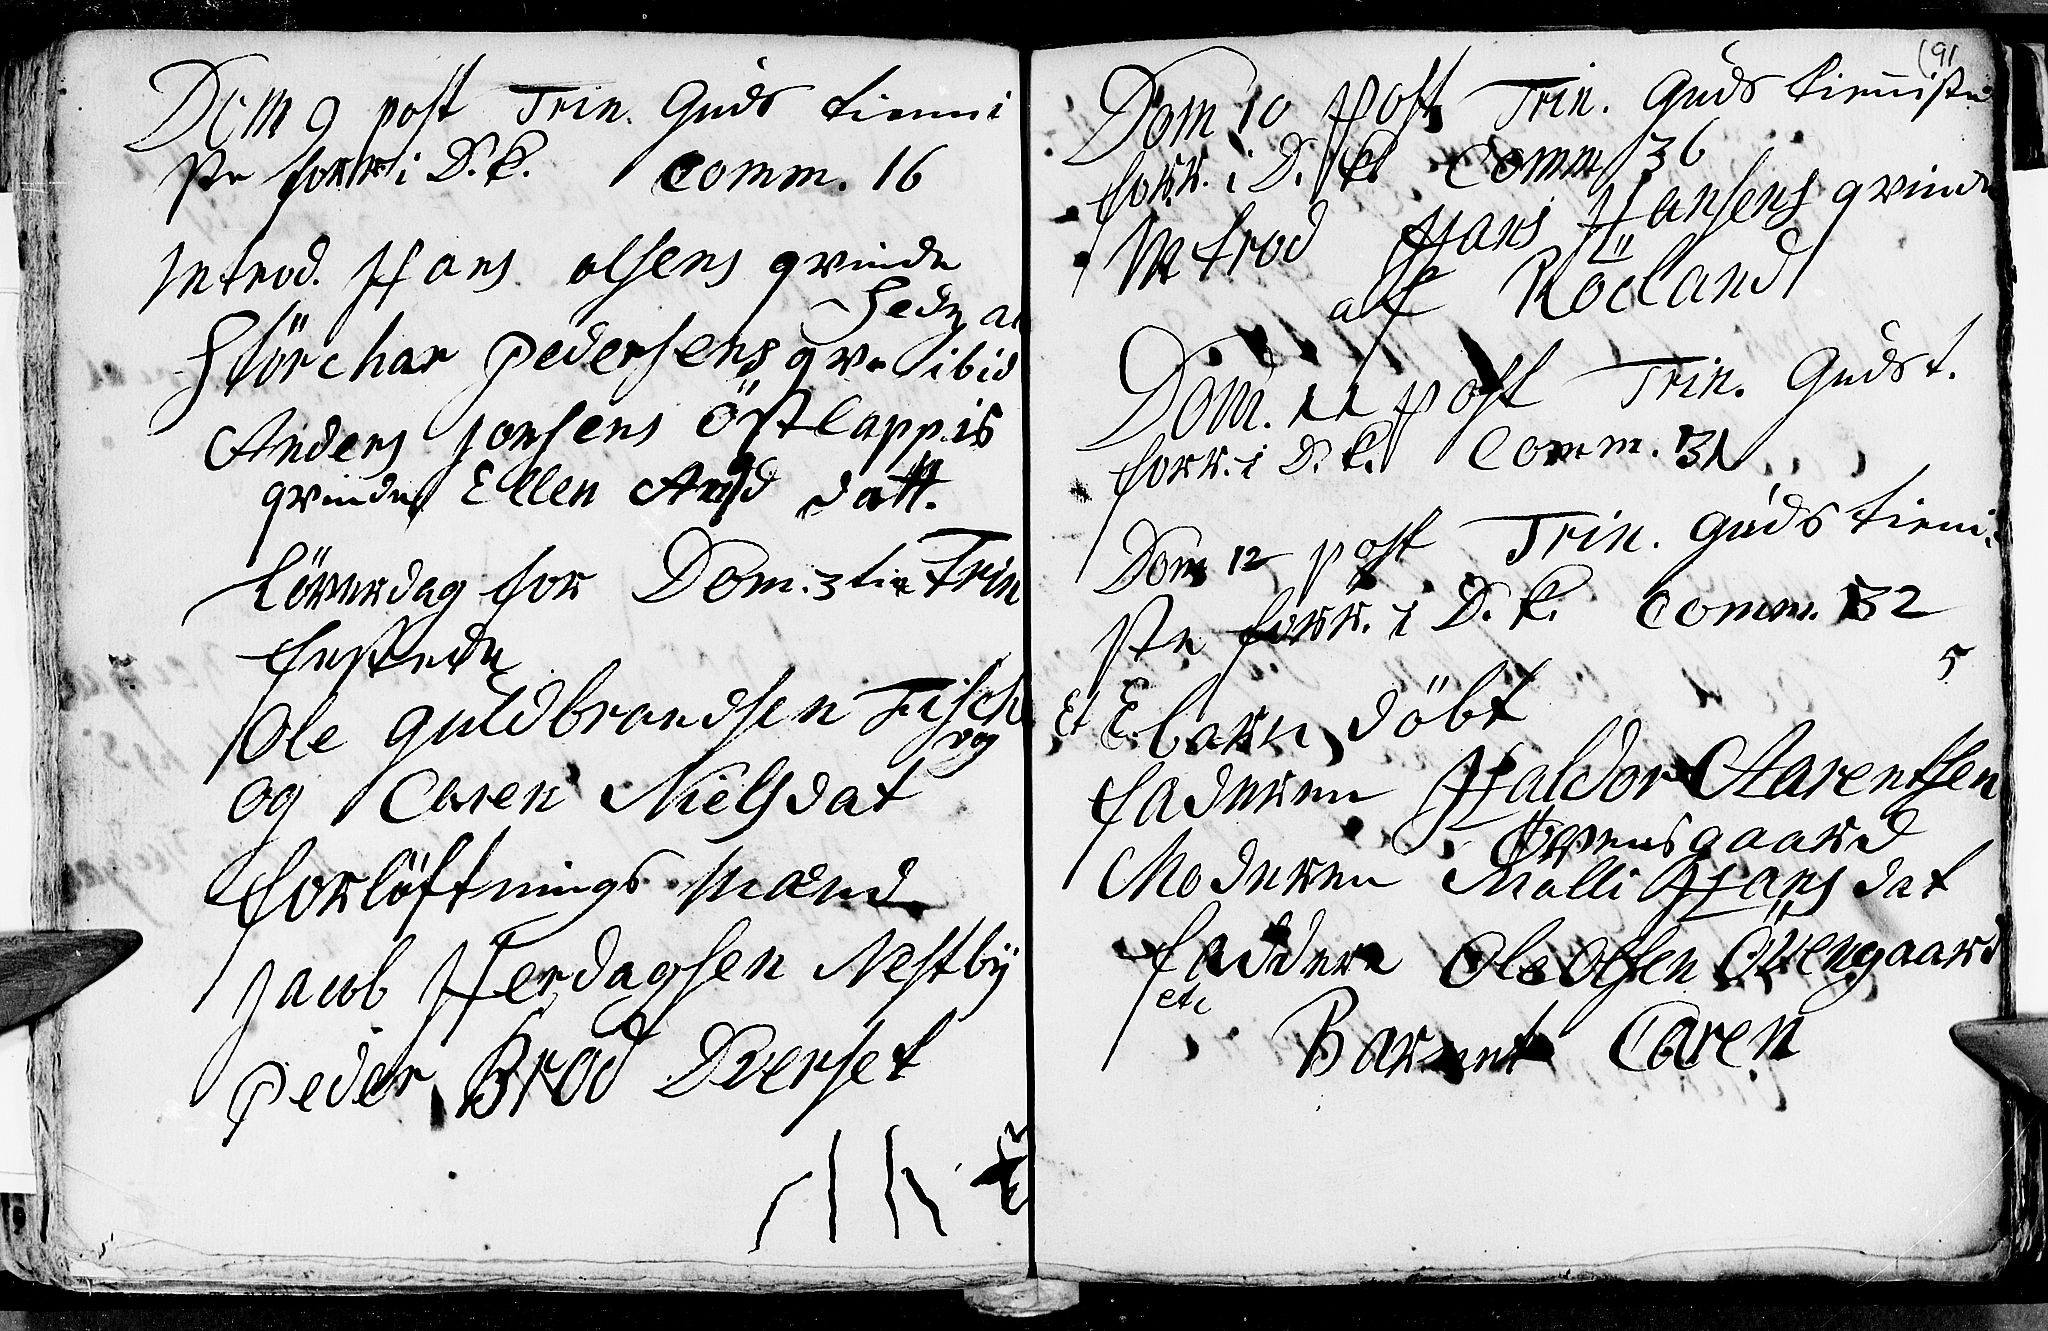 Dom 9 post Trin. Guds tienni
ste forr i D.k. Comm. 16
Introd. Hans olsens qvinde
Hede
Störchar Pedersens qv. ibid
Anders Jonsens Östlappis
qvinde Ellen And datt.
Löverdag for Dom. 3tie Trin
festede
Ole Guldbrandsen Fisch
vog
og Caren Nielsdat
forlöftnings mænd
Jacob Herdagsen Nestbÿ
Peder Brod Dverset
191
Dom 10 post Trin. Guds tienniste
forr. i D. k. Comm 36
Introd Hans Hansens qvinde
af Röeland
Dom. 11 post Trin. Guds t.
forr. i D.k. Comm. 31
Dom 12 post Trin. Guds tieni
ste forr. i D.k. Comm. 32
5
Et E. barn döbt
faderen Haldor Aarentsen
Øvensgaard
Moderen Malli Hansdat
faddere Ole Olsen Övengaard
etc
Barnet Caren